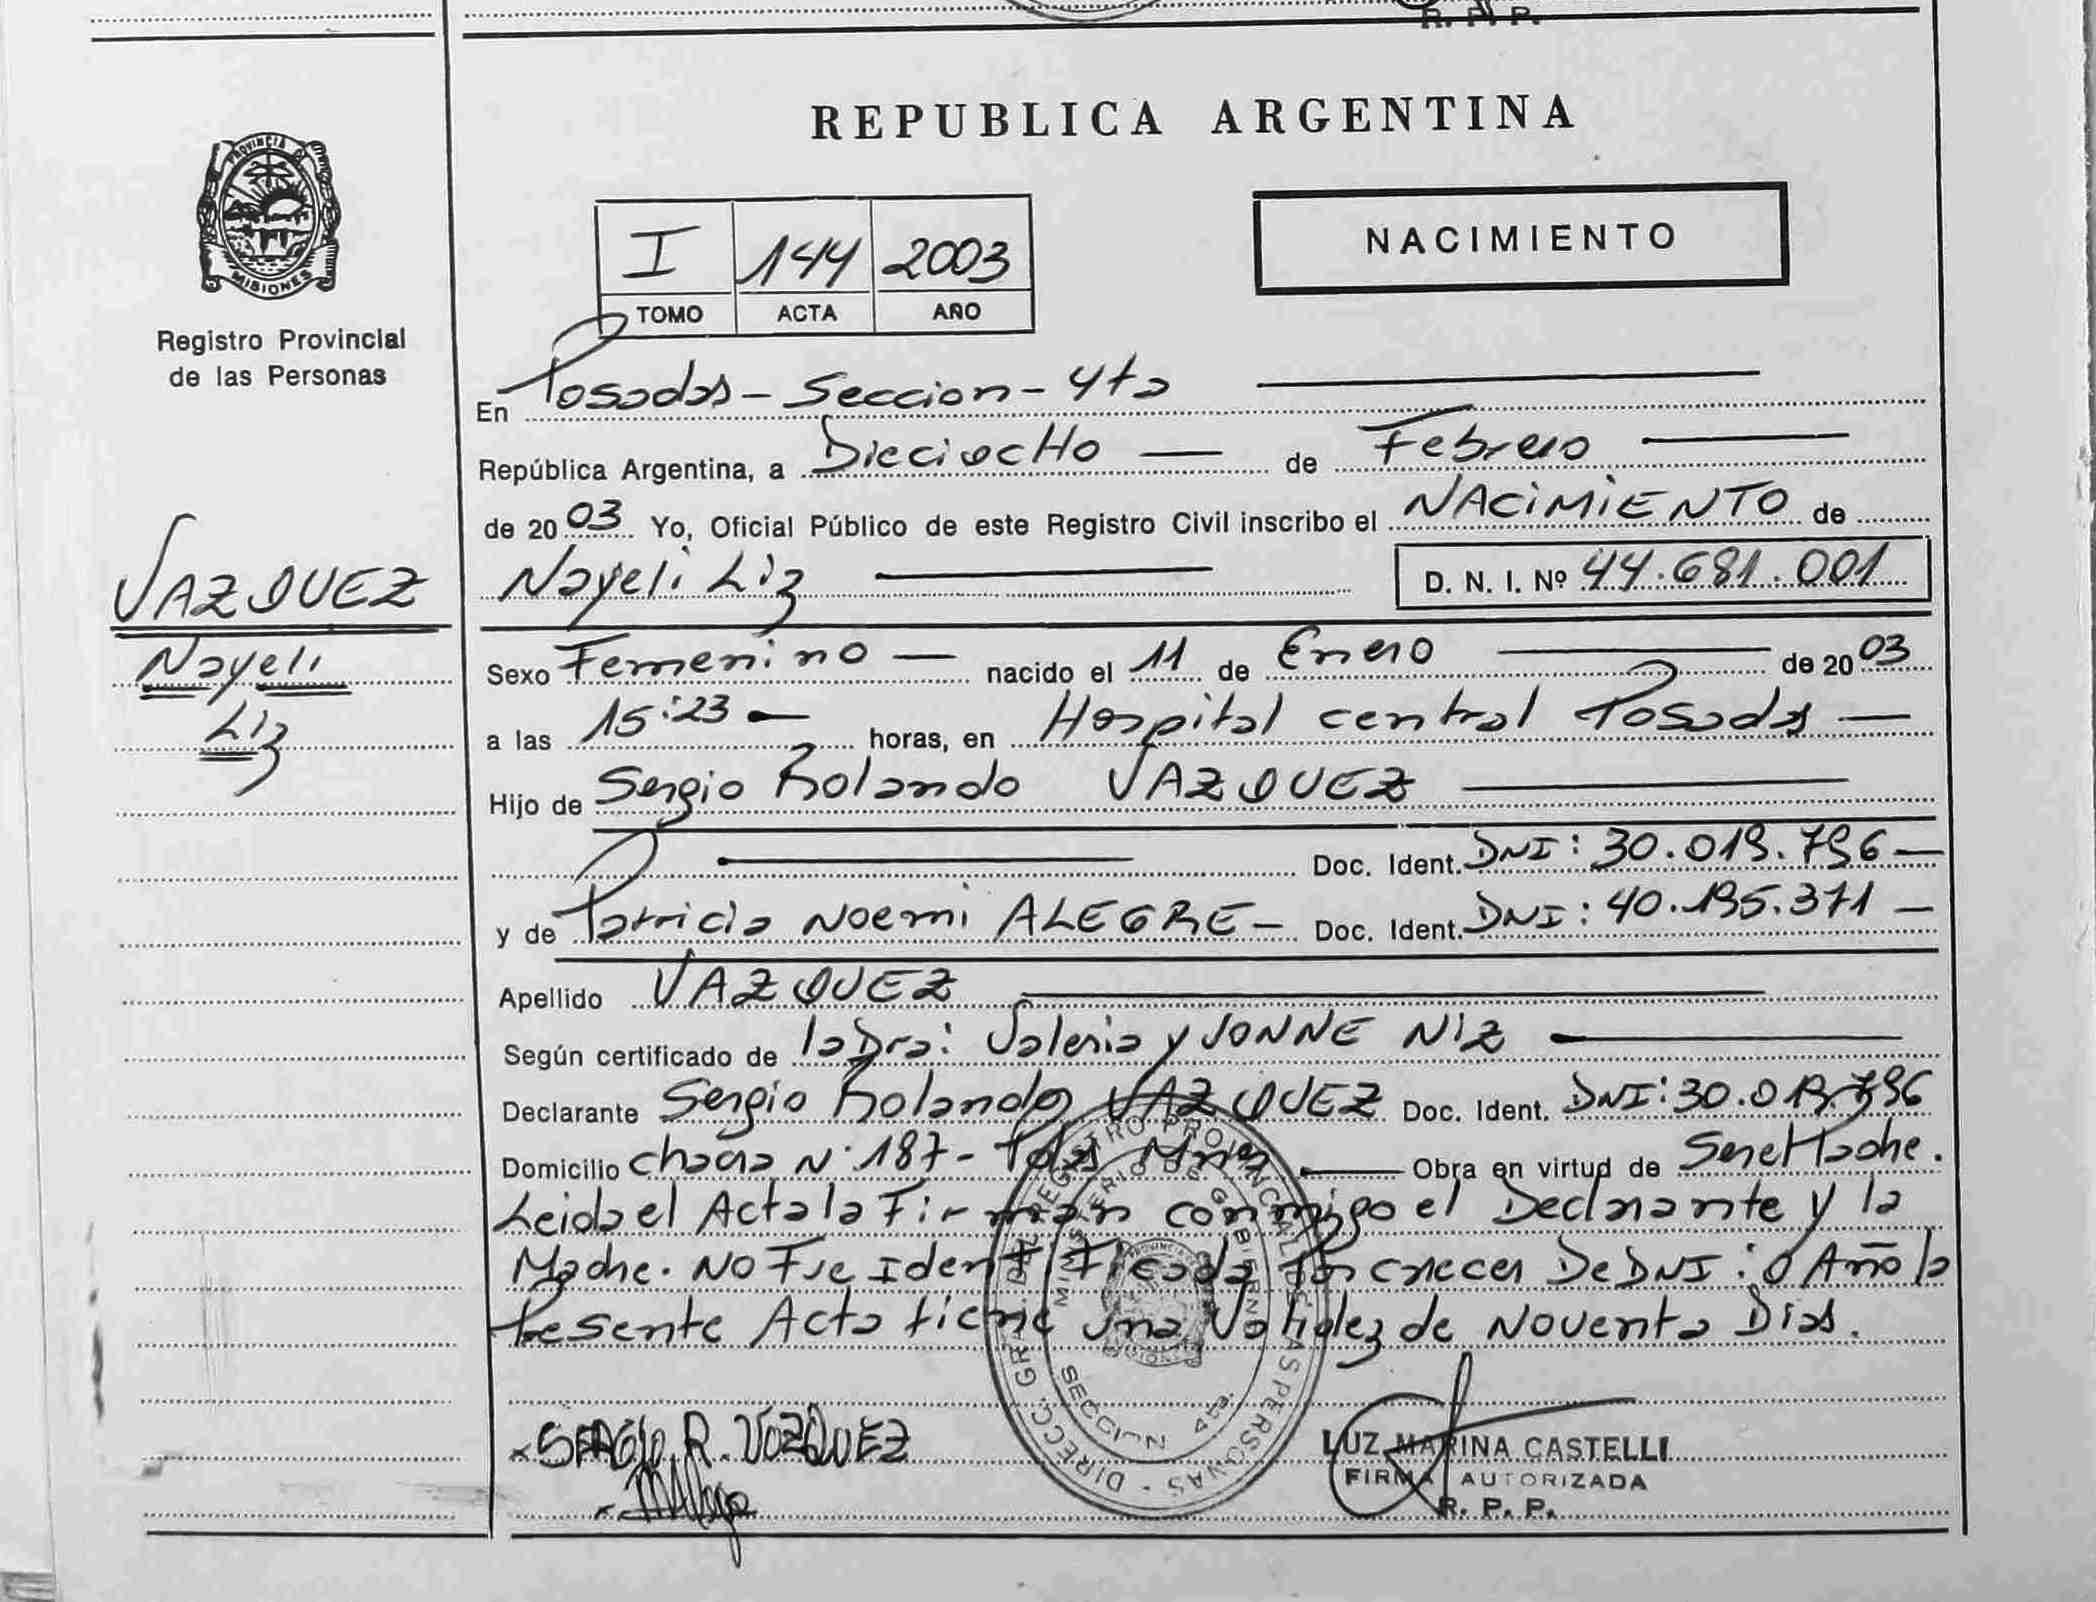 R. P. P.
PROVINCIA DE
MISIONES
Registro Provincial
de las Personas
VAZQUEZ
Nayeli
Liz
REPUBLICA ARGENTINA
I 144 2003
TOMO ACTA AÑO
NACIMIENTO
En Posadas - Seccion - 4ta
República Argentina, a DieciocHo de Febrero
de 20 03 Yo, Oficial Público de este Registro Civil inscribo el NACIMIENTO de
Nayeli Liz D. N. I. Nº 44.681.001
Sexo Femenino nacido el 11 de Enero de 20 03
a las 15:23 horas, en Hospital central Posadas
Hijo de Sergio Rolando VAZQUEZ
Doc. Ident. DNI: 30.019.796
y de Patricia Noemi ALEGRE Doc. Ident. DNI: 40.195.371
Apellido VAZQUEZ
Según certificado de la Dra: Valeria y VONNE NIZ
Declarante Sergio Rolando VAZQUEZ Doc. Ident. DNI: 30.019.796
Domicilio chacra N° 187 - Pdas Mnes Obra en virtud de Ser el Padre.
Leida el Acta la Firman conmigo el Declarante y la
Madre. No Fue Identificada Por crecer De DNI: 0 Año la
Presente Acta tiene una Validez de Noventa Dias.
DIRECC. GRAL. DEL REGISTRO PROVINCIAL DE LAS PERSONAS
MINISTERIO DE GOBIERNO
SECCION 4ta.
SERGIO R. VAZQUEZ
LUZ MARINA CASTELLI
FIRMA AUTORIZADA
R. P. P.